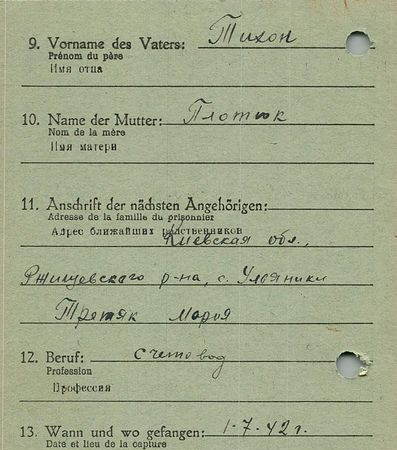 9. Vorname des Vaters: Тихон
Prénom du père
Имя отца
10. Name der Mutter: Плотнюк
Nom de la mère
Имя матери
11. Anschrift der nächsten Angehörigen:
Adresse de la famille du prisonnier
Адрес ближайших родственников
Киевская обл.,
Ржищевского р-на, с. Ульяники
Третяк Мария
12. Beruf: счетовод
Profession
Профессия
13. Wann und wo gefangen: 1.7.42 г.
Date et lieu de la capture